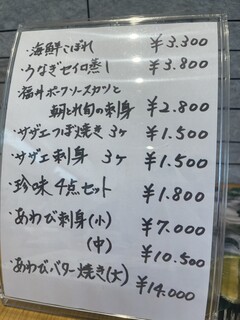 ・海鮮こぼれ ¥3.300
・うなぎセイロ蒸し ¥3.800
・福井ポークソースカツと
朝とれ旬の刺身 ¥2.800
・サザエつぼ焼き 3ヶ ¥1.500
・サザエ刺身 3ヶ ¥1.500
・珍味4点セット ¥1.800
・あわび刺身(小) ¥7.000
(中) ¥10.500
・あわびバター焼き(大) ¥14.000